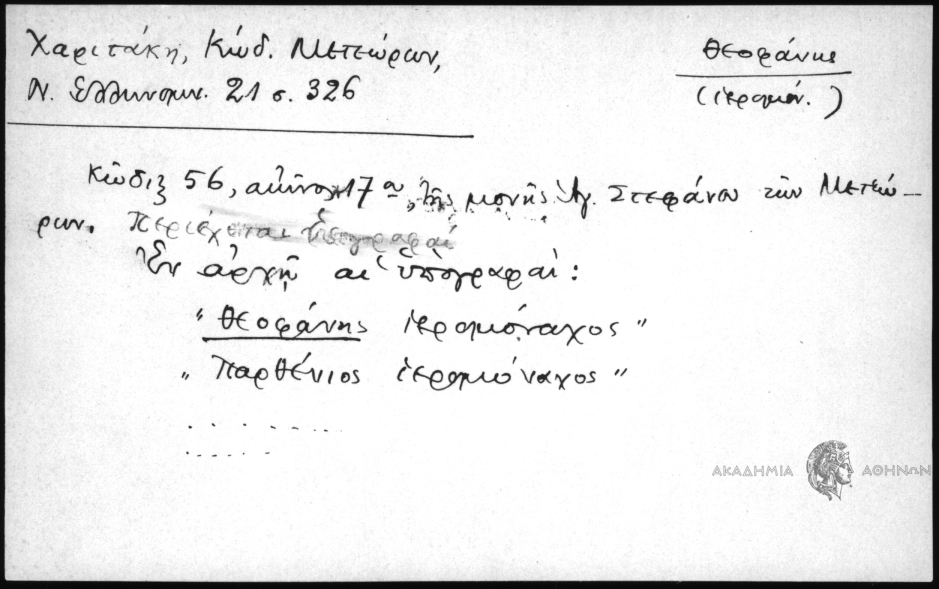 Χαριτάκη, Κώδ. Μετεώρων,
Ν. Ελληνομν. 21 σ. 326
Θεοφάνης
(ἱερομόν.)
Κῶδιξ 56, αἰῶνος 17ου, τῆς μονῆς Ἁγ. Στεφάνου τῶν Μετεώ-
ρων. Περιέχεται
Ἐν ἀρχῇ αἱ ὑπογραφαί:
"Θεοφάνης ἱερομόναχος"
"Παρθένιος ἱερομόναχος"
. . . . . . . . .
. . . . . . .
ΑΚΑΔΗΜΙΑ ΑΘΗΝΩΝ